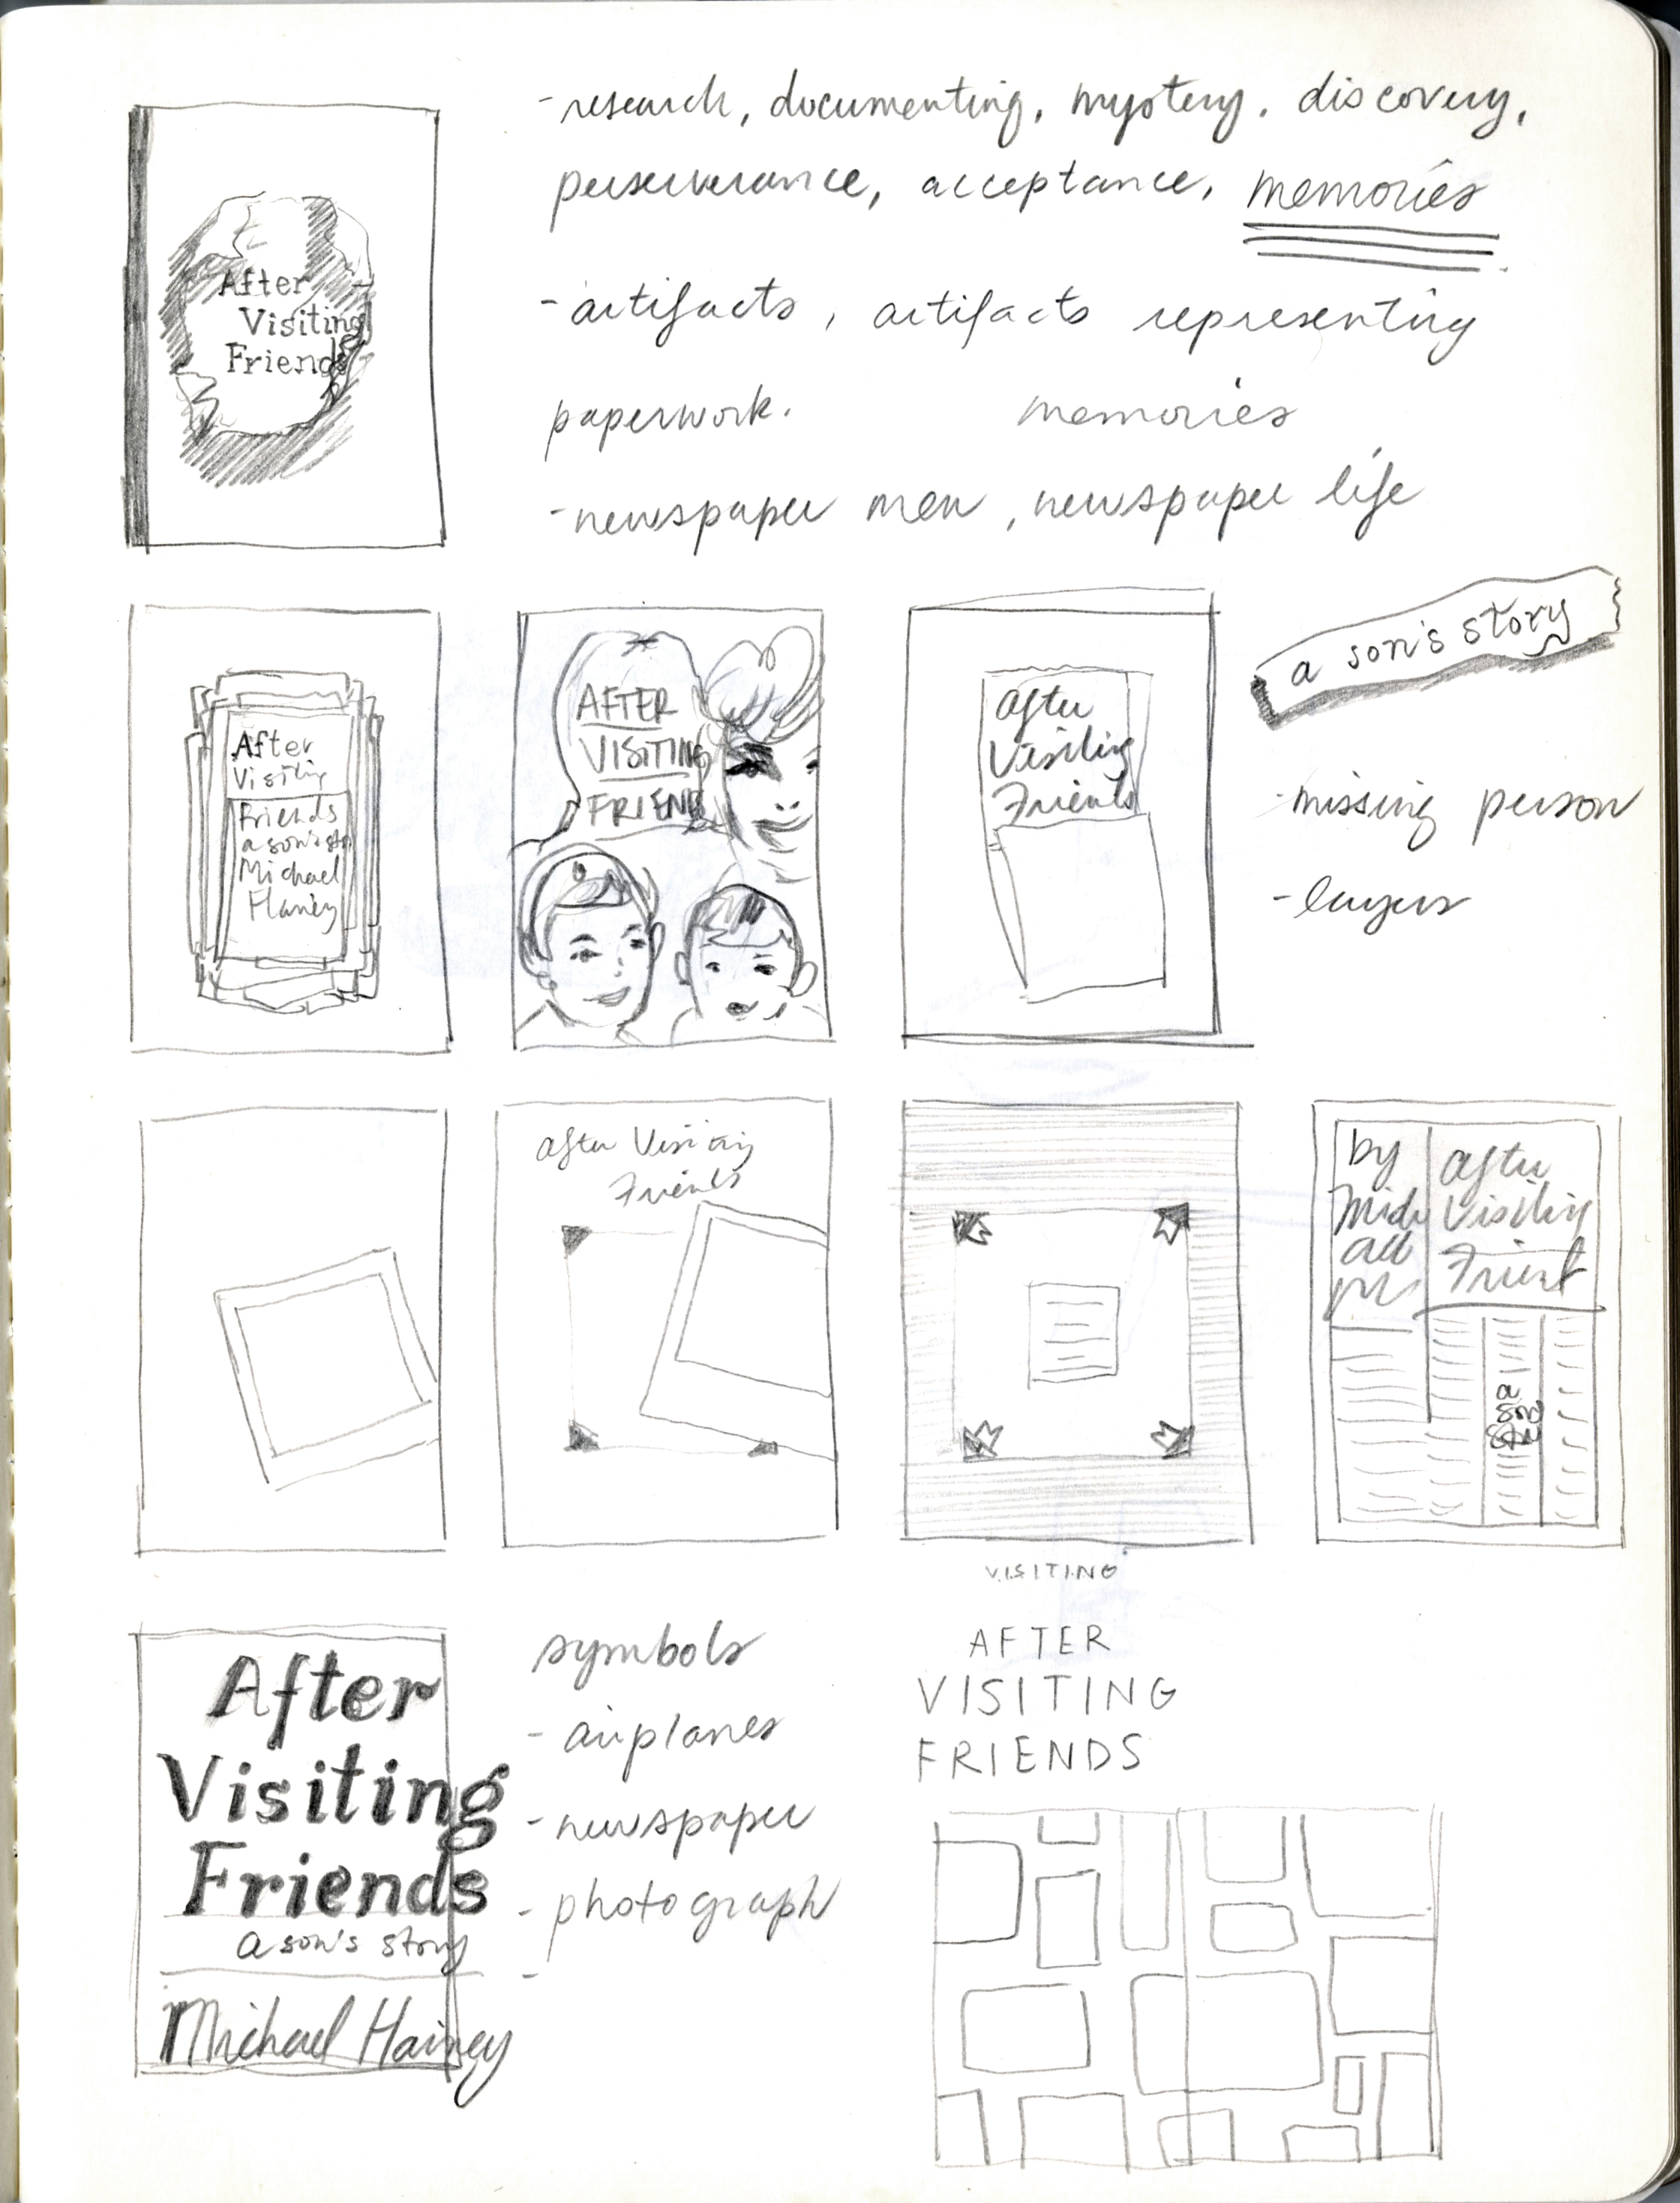 -research, documenting, mystery. discovery,
perserverance, acceptance, memories
-artifacts, artifacts representing
paperwork. memories
-newspaper men, newspaper life
After
Visiting
Friends
a son's story
After
Visiting
Friends
a son's sto
Michael
Hainey
AFTER
VISITING
FRIEND
After
Visiting
Friends
-missing person
-layers
After Visiting
Friends
by
After
Visiting
Friend
a
son
VISITING
After
Visiting
Friends
a son's story
Michael Hainey
symbols
- airplanes
- newspaper
- photograph
-
AFTER
VISITING
FRIENDS